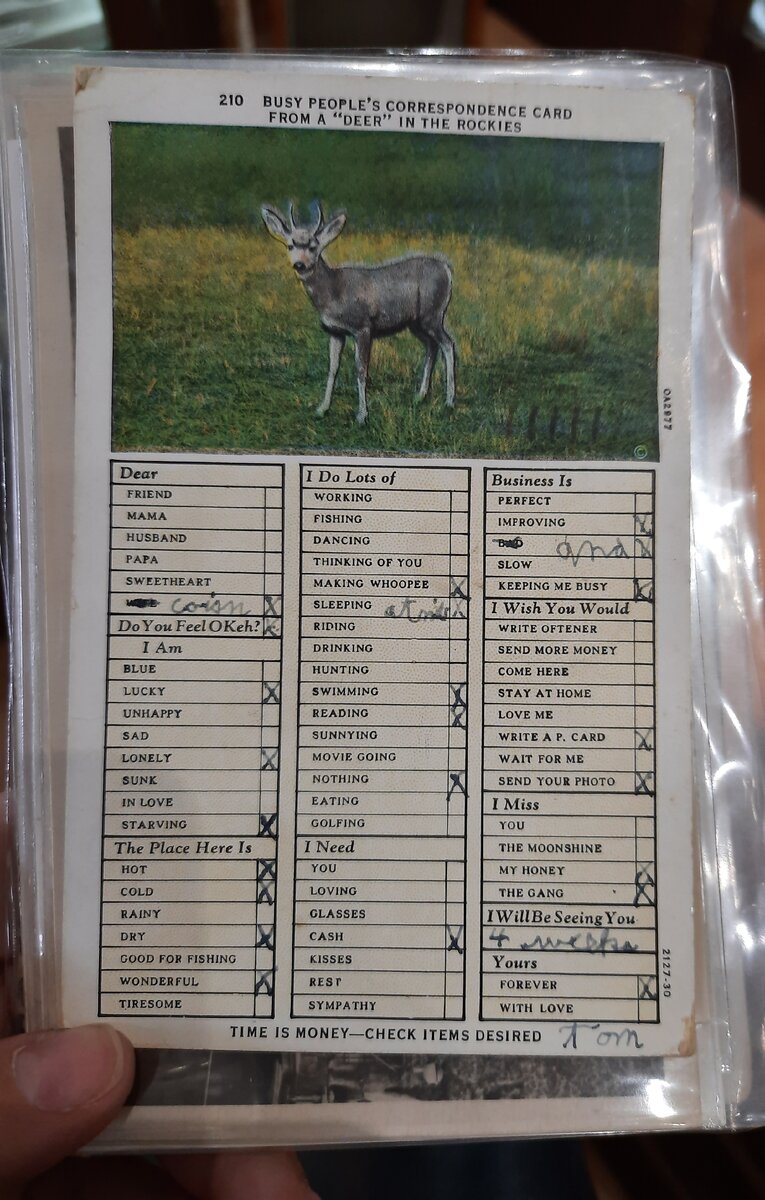 210 BUSY PEOPLE'S CORRESPONDENCE CARD
FROM A "DEER" IN THE ROCKIES
OA2977
©
Dear
FRIEND
MAMA
HUSBAND
PAPA
SWEETHEART
coisn X
Do You Feel OKeh? X
I Am
BLUE
LUCKY X
UNHAPPY
SAD
LONELY X
SUNK
IN LOVE
STARVING X
The Place Here Is
HOT X
COLD X
RAINY
DRY X
GOOD FOR FISHING
WONDERFUL X
TIRESOME
I Do Lots of
WORKING
FISHING
DANCING
THINKING OF YOU
MAKING WHOOPEE X
SLEEPING at nite X
RIDING
DRINKING
HUNTING
SWIMMING X
READING X
SUNNYING
MOVIE GOING
NOTHING X
EATING
GOLFING
I Need
YOU
LOVING
GLASSES
CASH X
KISSES
REST
SYMPATHY
Business Is
PERFECT
IMPROVING X
BAD and X
SLOW
KEEPING ME BUSY X
I Wish You Would
WRITE OFTENER
SEND MORE MONEY
COME HERE
STAY AT HOME
LOVE ME
WRITE A P. CARD X
WAIT FOR ME
SEND YOUR PHOTO X
I Miss
YOU
THE MOONSHINE
MY HONEY X
THE GANG X
I Will Be Seeing You
4 weeks
Yours
FOREVER X
WITH LOVE
2127-30
TIME IS MONEY—CHECK ITEMS DESIRED Tom